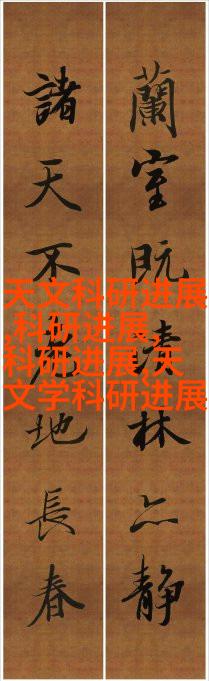 蘭室既林亦静
諸天不老地長春
天文科研进展
,科研进展,
科研进展,天
文学科研进展